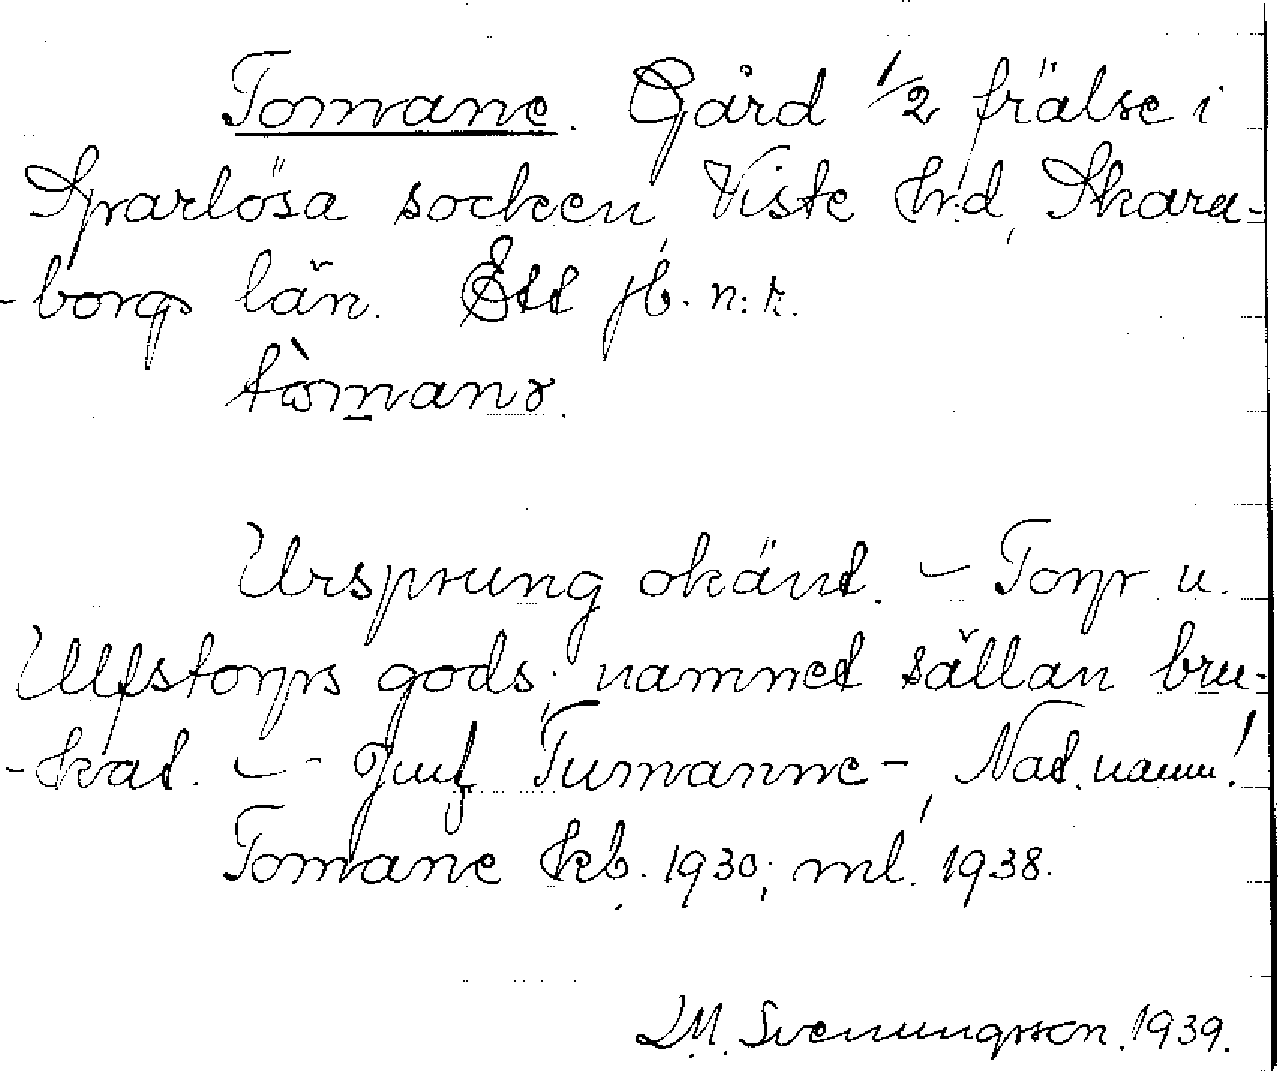 Tomane. Gård 1/2 frälse i
Sparlösa socken, Viste hd, Skara-
-borgs län. Ett jb. n:r.
tòmanə.
Ursprung okänt. – Torp u.
Ulfstorps gods; namnet sällan bru-
-kat. – Jmf Tumanne-, Nat. namn!
Tomane kb. 1930; ml. 1938.
M. Svenungsson. 1939.